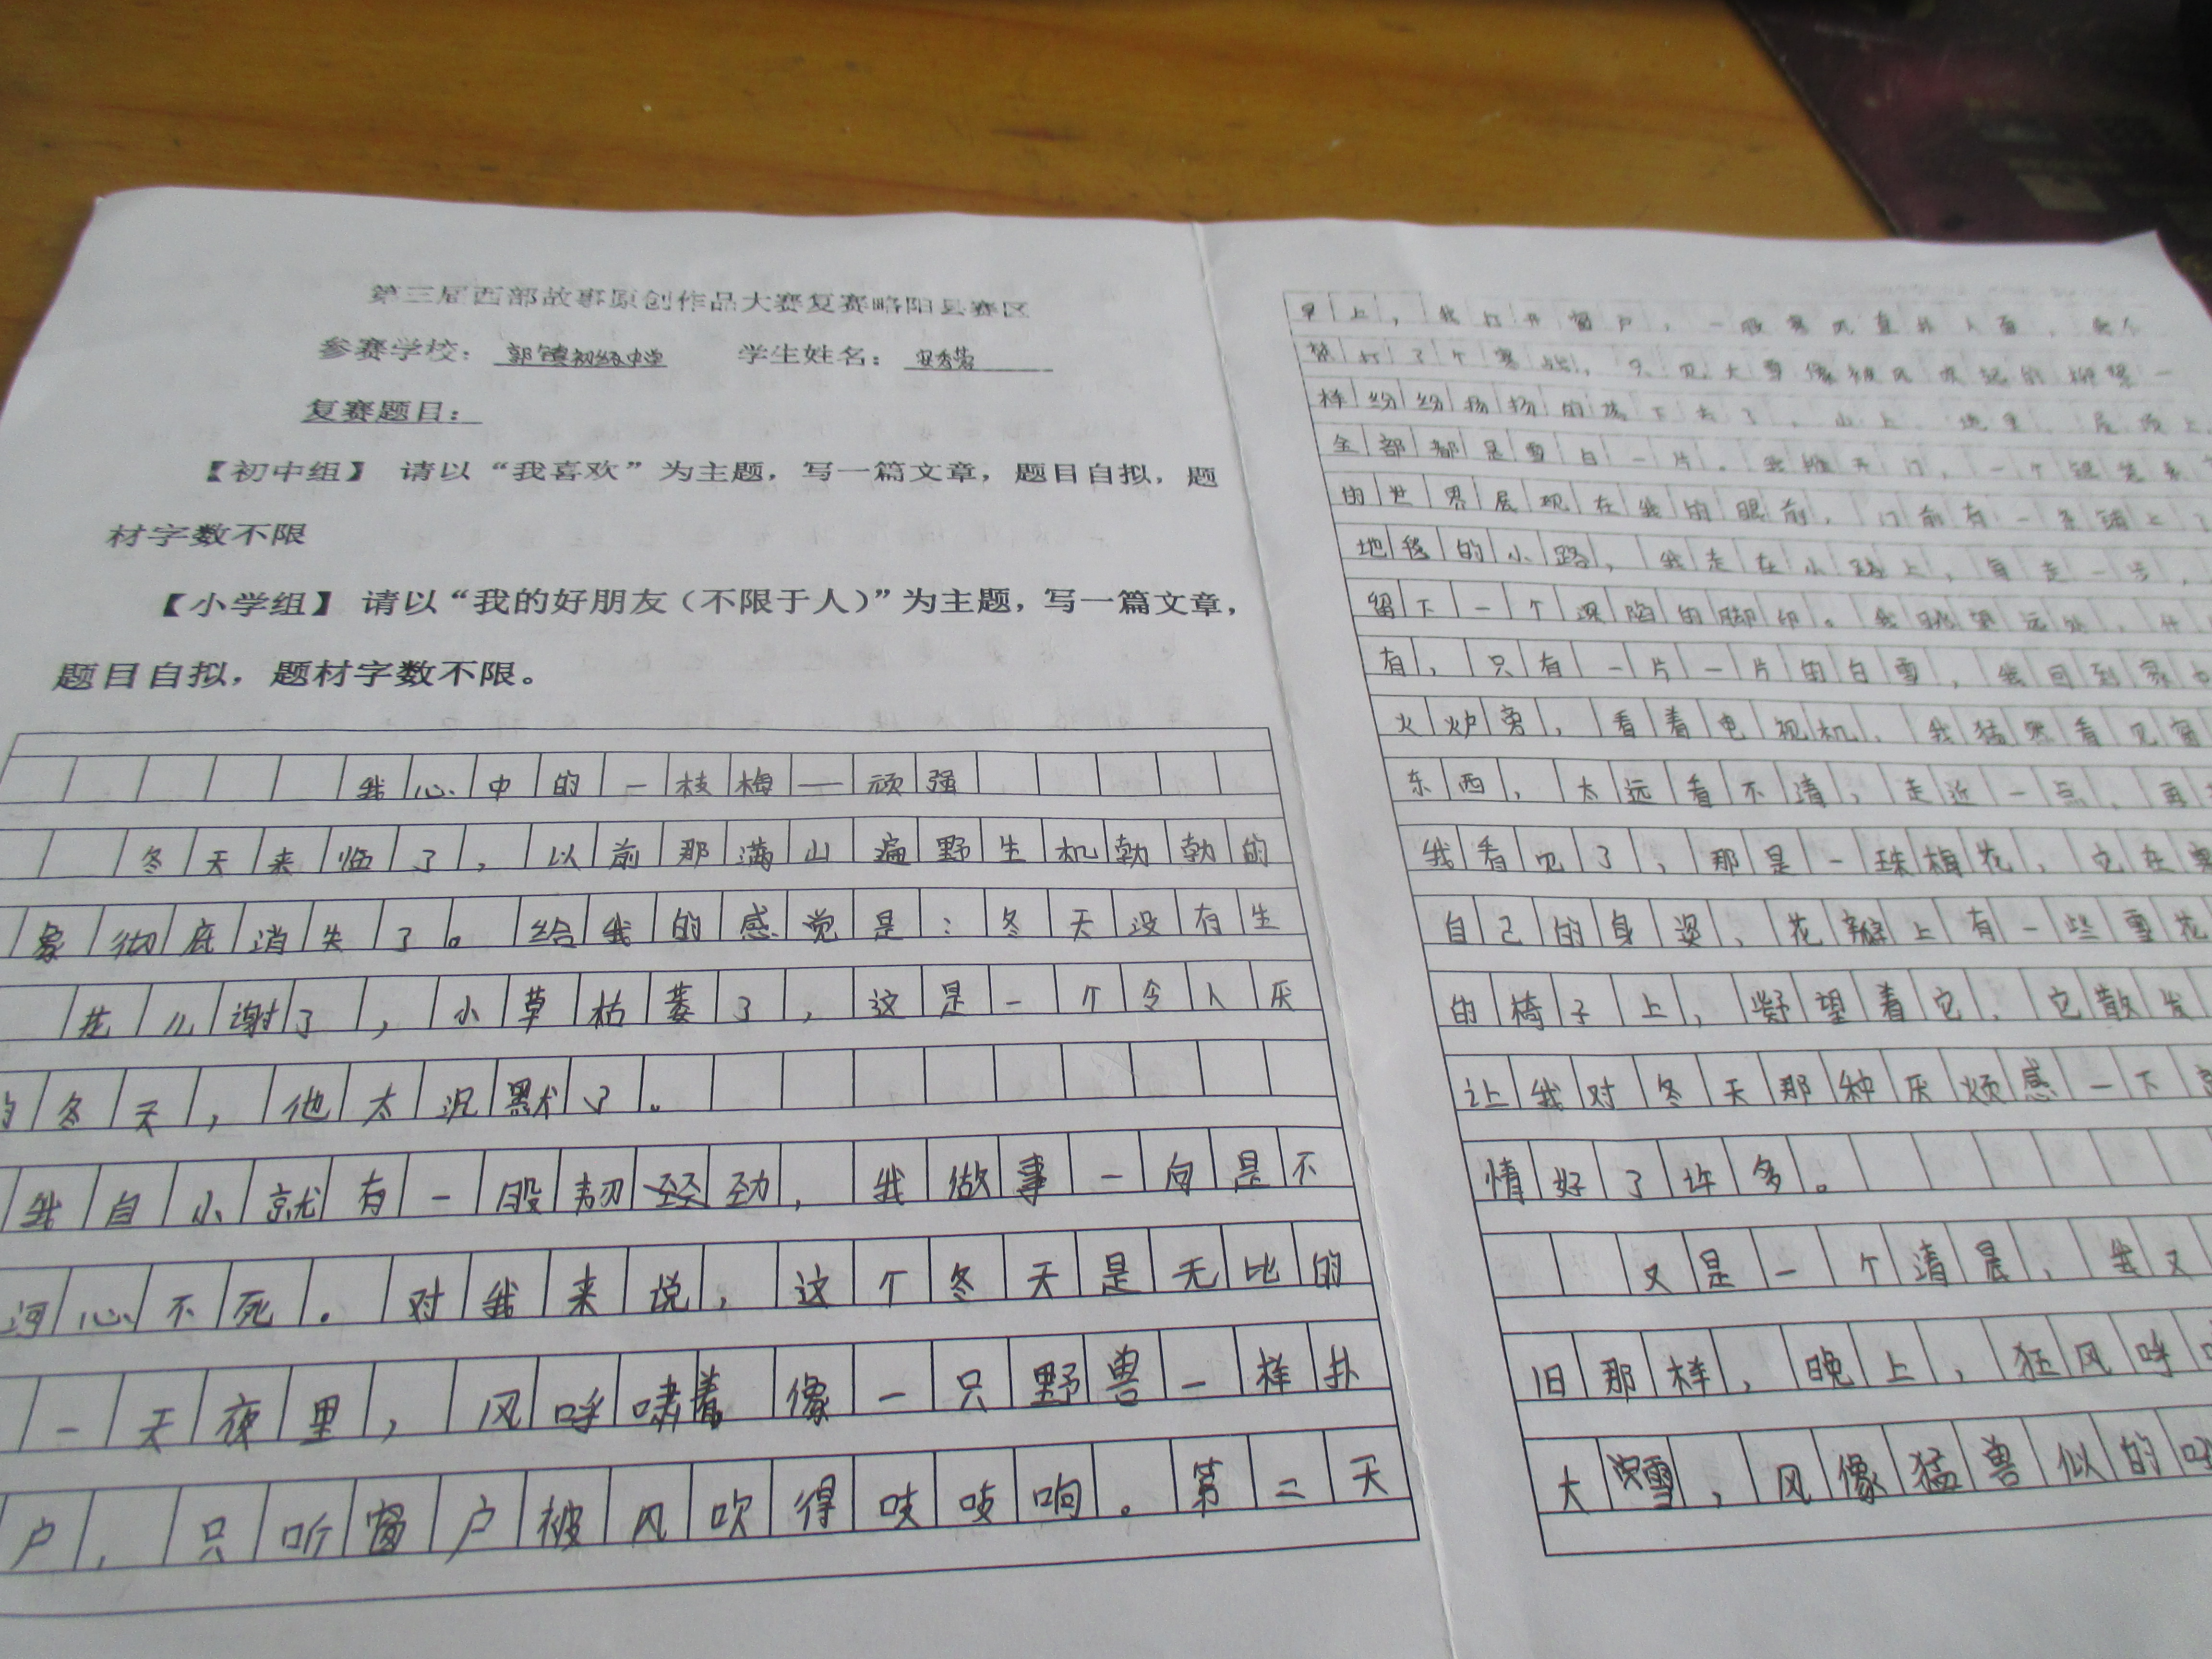 第三届西部故事原创作品大赛复赛略阳县赛区
参赛学校：郭镇初级中学 学生姓名：
复赛题目：
【初中组】 请以“我喜欢”为主题，写一篇文章，题目自拟，题
材字数不限
【小学组】 请以“我的好朋友（不限于人）”为主题，写一篇文章，
题目自拟，题材字数不限。
我心中的一枝梅—顽强
冬天来临了，以前那满山遍野生机勃勃的
象彻底消失了。给我的感觉是：冬天没有生
花儿谢了，小草枯萎了，这是一个令人厌
的冬天，他太沉默了。
我自小就有一股韧劲，我做事一向是不
河心不死。对我来说，这个冬天是无比的
一天夜里，风呼啸着像一只野兽一样扑
户，只听窗户被风吹得吱吱响。第二天
早上，我打开窗户，一股寒风直扑人面，
打了个寒战，只见大雪像被风吹起的柳絮一
样纷纷扬扬的落下去了，山上、地里、屋顶上
全部都是雪白一片。我推开门，一个银装素
的世界展现在我的眼前，门前有一条铺上
地毯的小路，我走在小路上，每走一步，
留下一个深陷的脚印。我眺望远处，什
有，只有一片一片的白雪，我回到家中
火炉旁，看着电视机，我猛然看见窗
东西，太远看不清，走近一点，再
我看见了，那是一株梅花，它在
自己的身姿，花瓣上有一些雪花
的椅子上，望着它，它散发
让我对冬天那种厌烦感一下
情好了许多。
又是一个清晨，我又
旧那样，晚上，狂风呼
大雪，风像猛兽似的